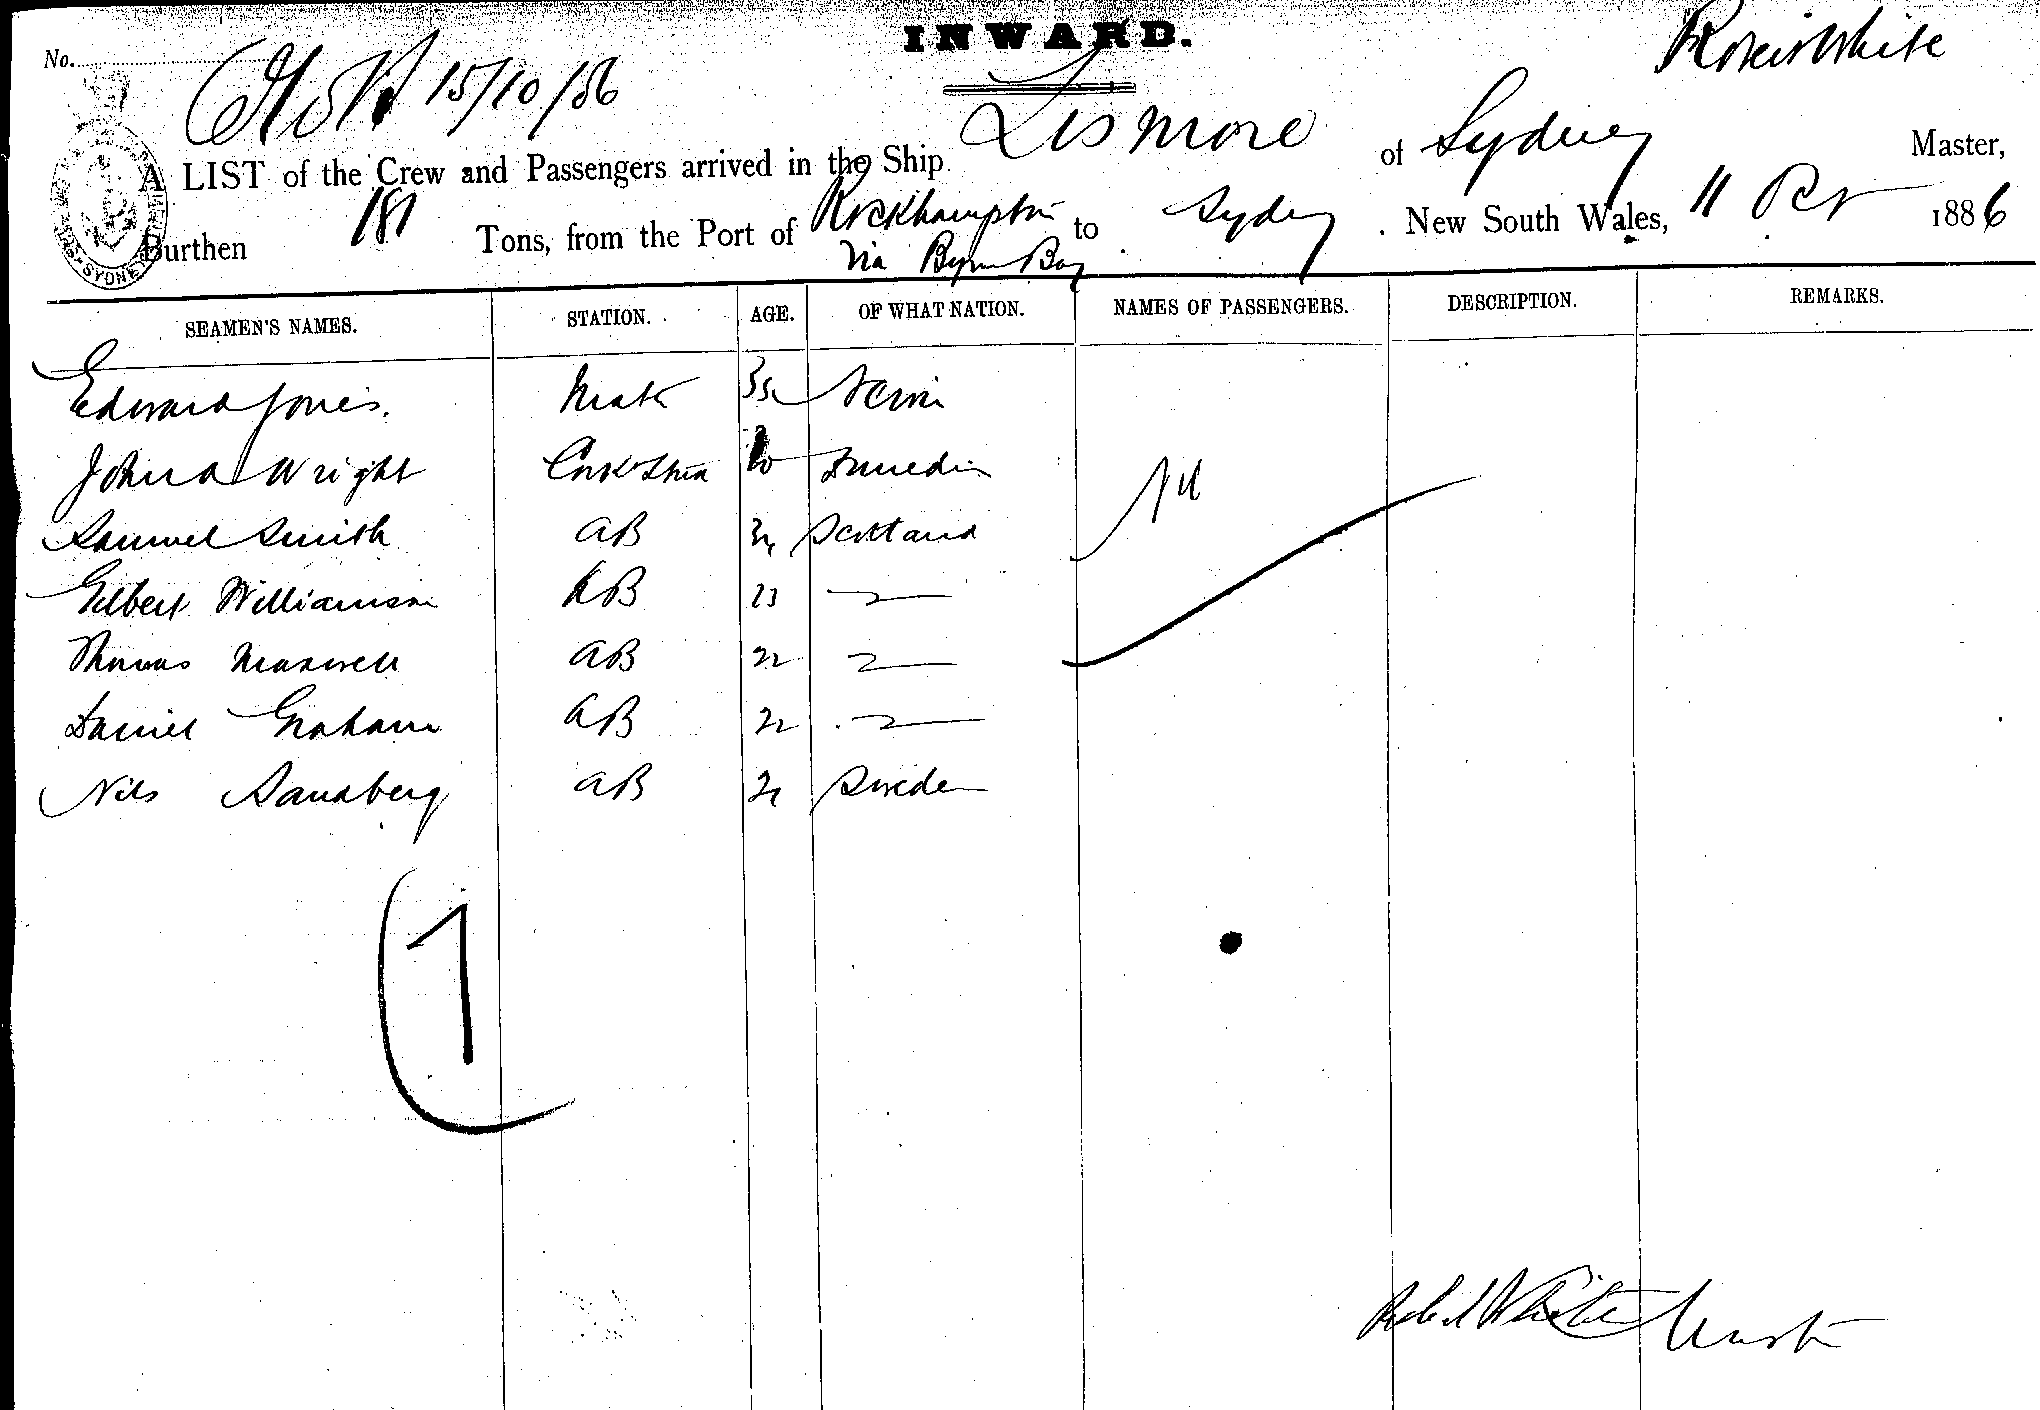 INWARD.
No.
15/10/86
Robert White
A LIST of the Crew and Passengers arrived in the Ship Lismore of Sydney Master,
Burthen 181 Tons, from the Port of Rockhampton to Sydney New South Wales, 11 Oct 1886
Via Byron Bay
SYDNEY
SEAMEN'S NAMES. STATION. AGE. OF WHAT NATION. NAMES OF PASSENGERS. DESCRIPTION. REMARKS.
Edward Jones. Mate
John Wright Cook & Stew Dunedin
Samuel Smith AB Scotland
Nil
Gilbert Williamson AB 23 "
Thomas Maxwell AB 22 "
Daniel Graham AB 22 "
Nils Sandberg AB Sweden
7
Robert White Master